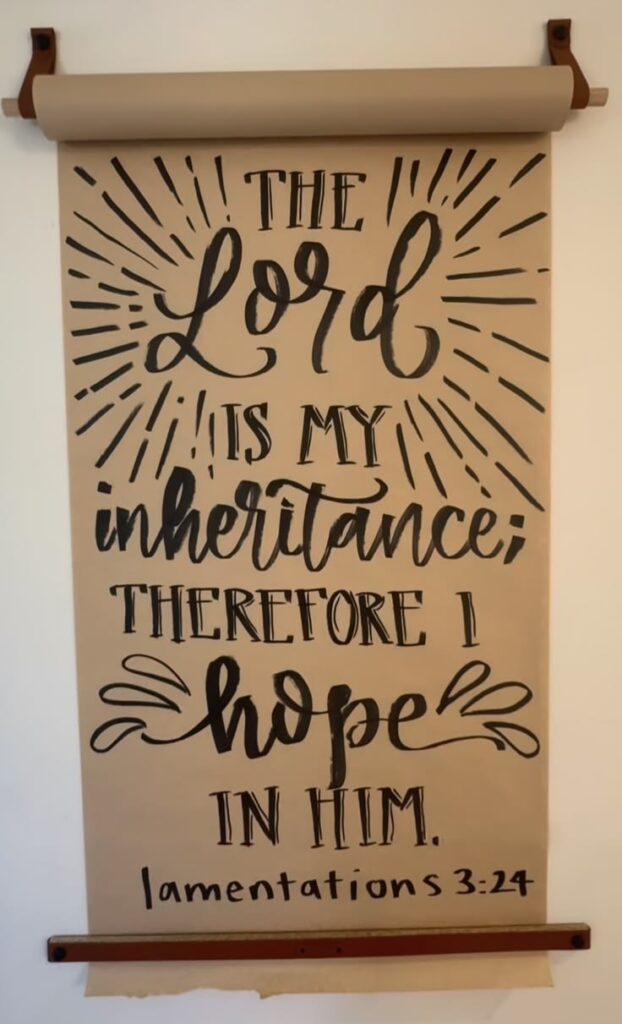 THE
Lord
IS MY
inheritance;
THEREFORE I
hope
IN HIM.
lamentations 3:24